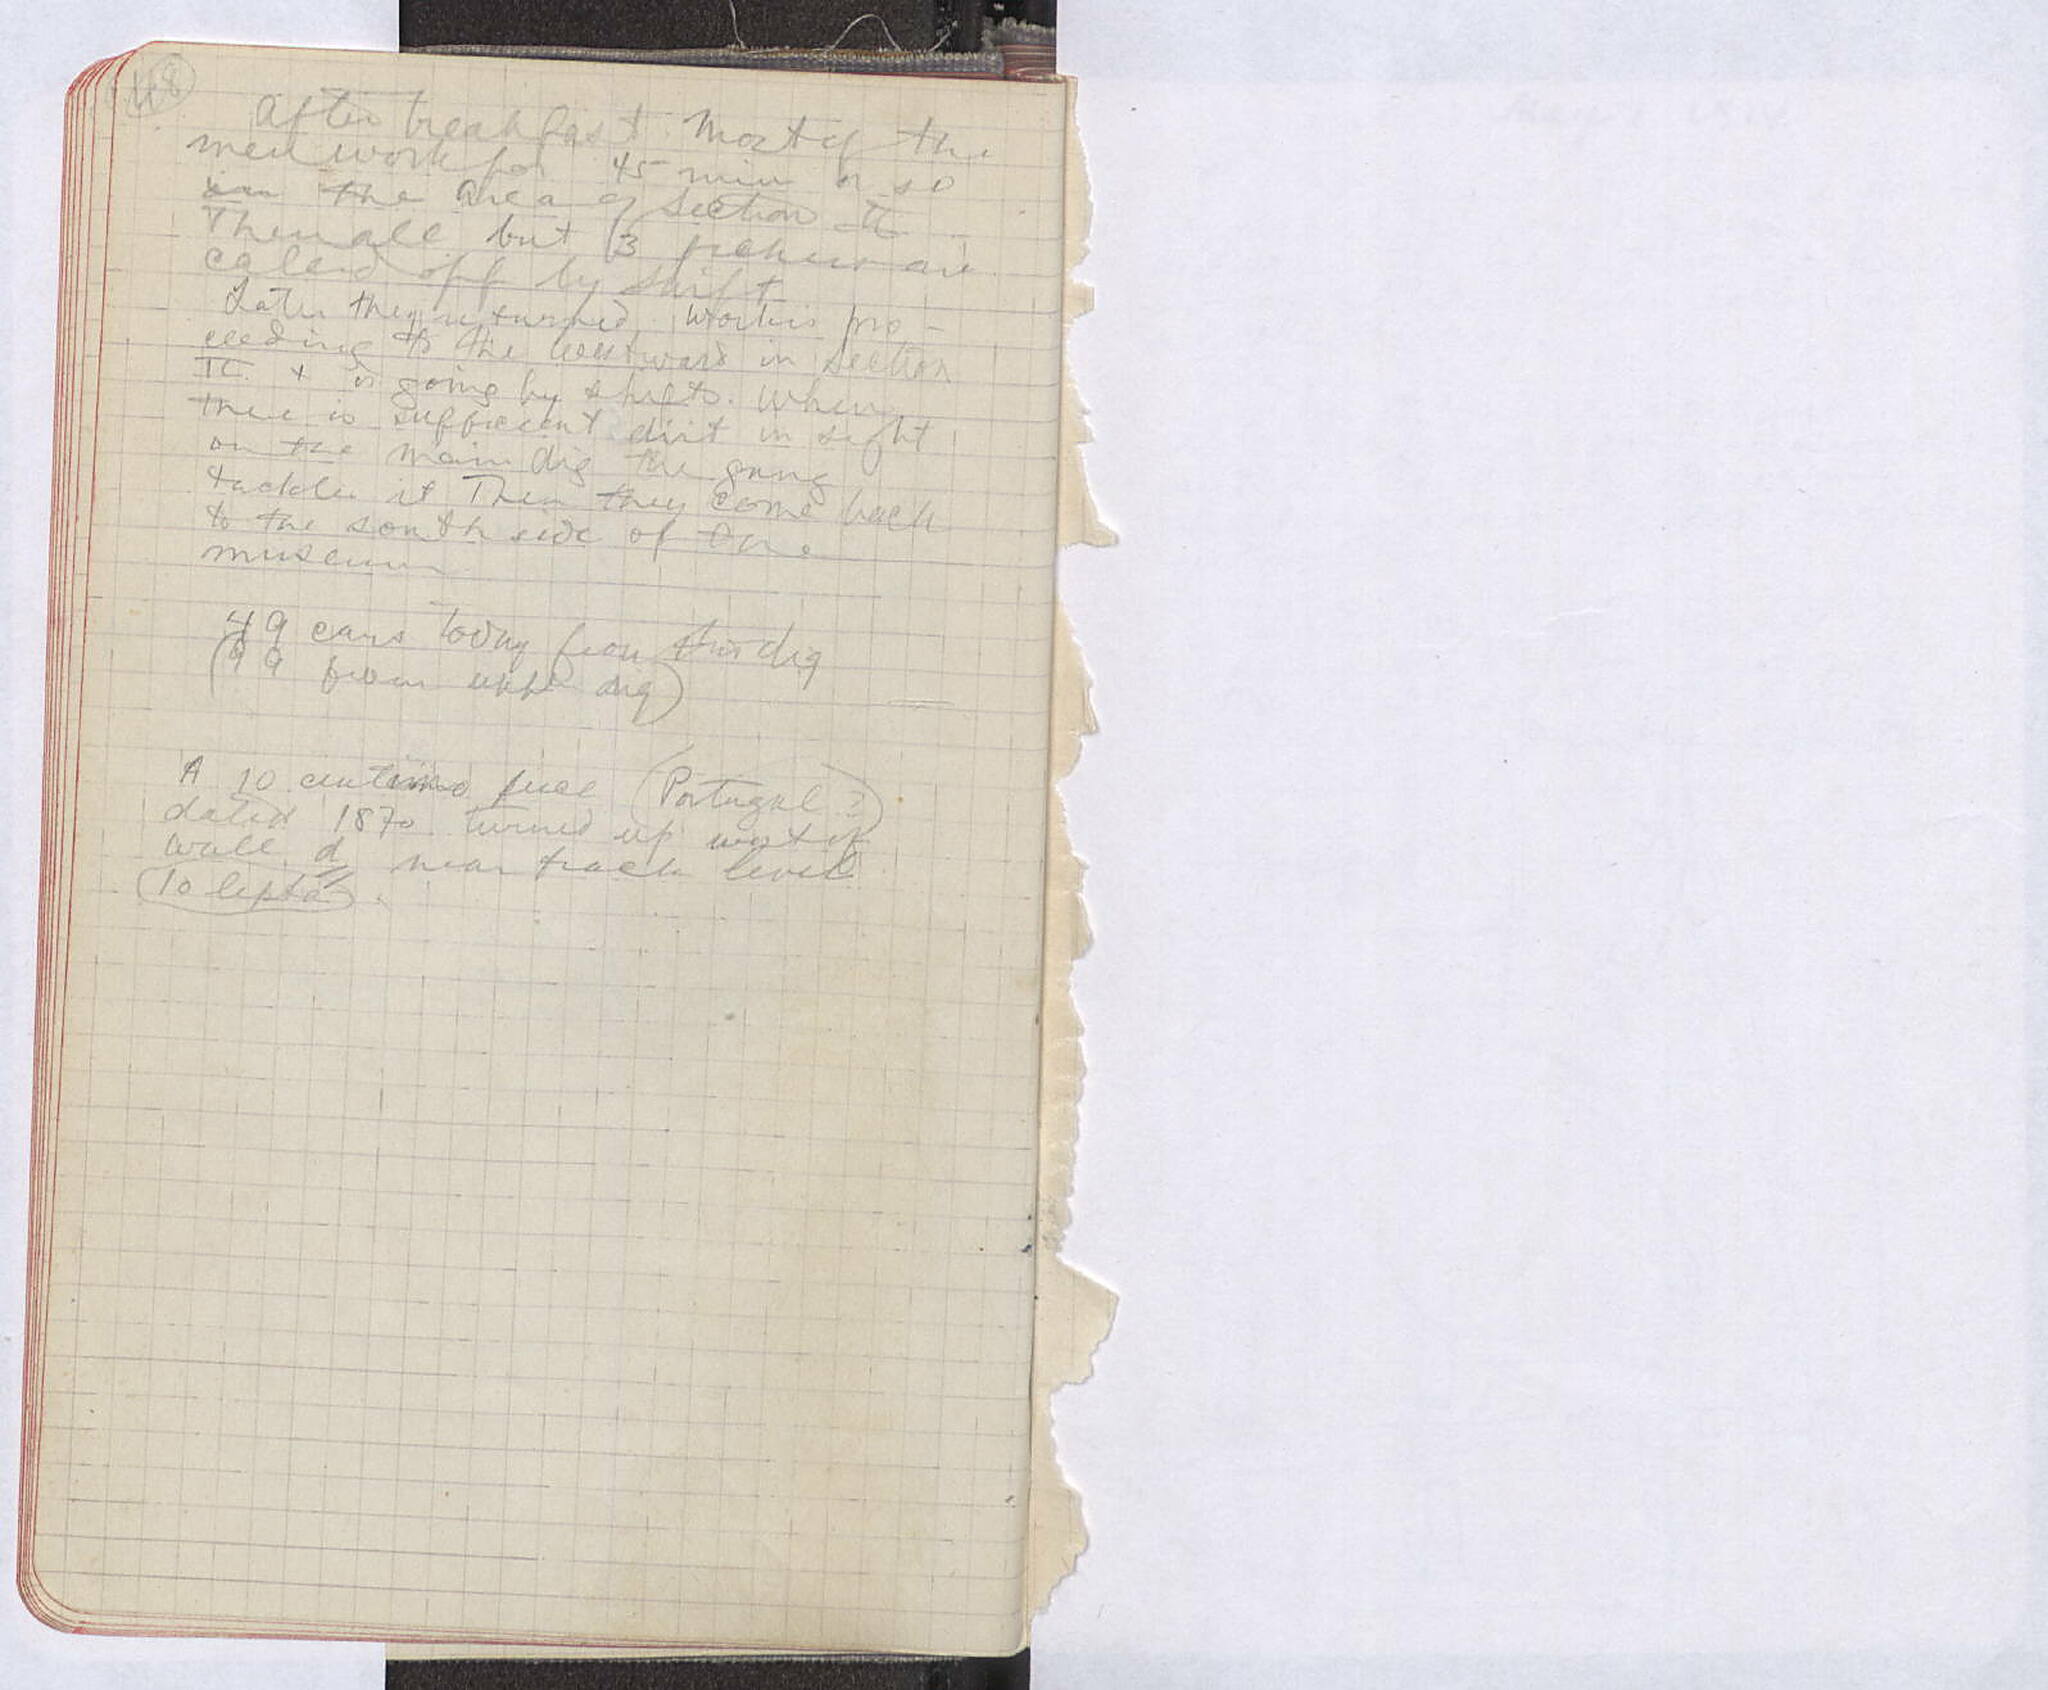 48
After breakfast most of the
men work for 45 min or so
in the area of Section II
Then all but 3 pickmen are
called off by shift
Later they returned. Work is pro-
ceeding to the westward in section
II + is going by shifts. When
there is sufficient dirt in sight
on the main dig the gang
tackles it Then they come back
to the south side of the
museum
49 cars today from this dig
(99 from upper dig)
A 10 centimo piece (Portugal?)
dated 1870 turned up west of
wall d near track level
10 lepta